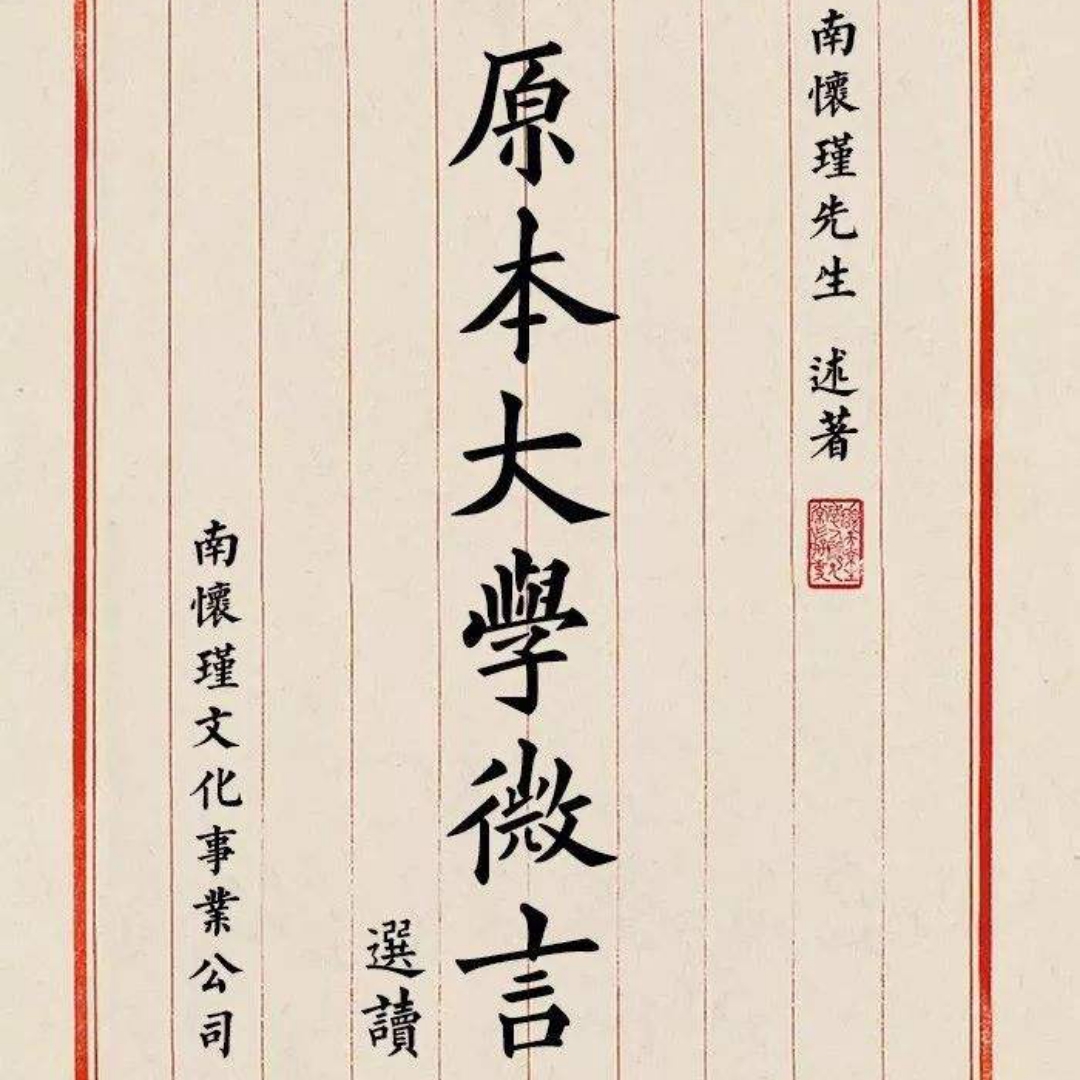 南懷瑾先生 述著
原本大學微言
選讀
南懷瑾文化事業公司